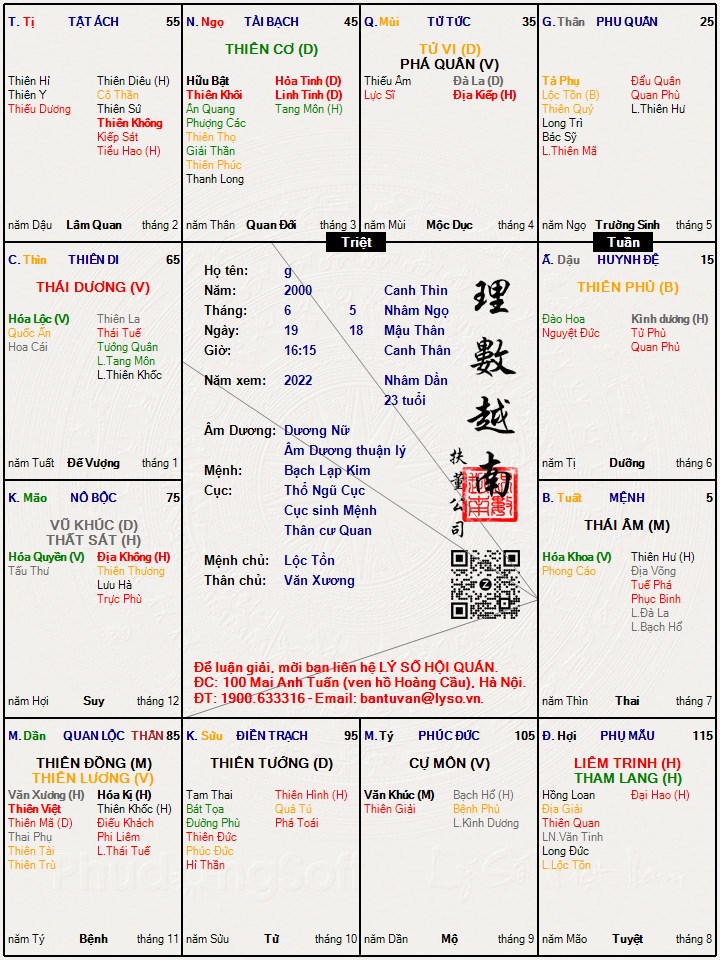 T. Tị TẬT ÁCH 55
Thiên Hỉ Thiên Diêu (H)
Thiên Y Cô Thần
Thiếu Dương Thiên Sứ
Thiên Không
Kiếp Sát
Tiểu Hao (H)
năm Dậu Lâm Quan tháng 2
N. Ngọ TÀI BẠCH 45
THIÊN CƠ (D)
Hữu Bật Hỏa Tinh (D)
Thiên Khôi Linh Tinh (D)
Ân Quang Tang Môn (H)
Phượng Các
Thiên Thọ
Giải Thần
Thiên Phúc
Thanh Long
năm Thân Quan Đới tháng 3
Q. Mùi TỬ TỨC 35
TỬ VI (D)
PHÁ QUÂN (V)
Thiếu Âm Đà La (D)
Lực Sĩ Địa Kiếp (H)
năm Mùi Mộc Dục tháng 4
G. Thân PHU QUÂN 25
Tả Phụ Đẩu Quân
Lộc Tồn (B) Quan Phù
Thiên Quý L.Thiên Hư
Long Trì
Bác Sỹ
L.Thiên Mã
năm Ngọ Trường Sinh tháng 5
Triệt
Tuần
C. Thìn THIÊN DI 65
THÁI DƯƠNG (V)
Hóa Lộc (V) Thiên La
Quốc Ấn Thái Tuế
Hoa Cái Tướng Quân
L.Tang Môn
L.Thiên Khốc
năm Tuất Đế Vượng tháng 1
Họ tên: g
Năm: 2000 Canh Thìn
Tháng: 6 5 Nhâm Ngọ
Ngày: 19 18 Mậu Thân
Giờ: 16:15 Canh Thân
Năm xem: 2022 Nhâm Dần
23 tuổi
Âm Dương: Dương Nữ
Âm Dương thuận lý
Mệnh: Bạch Lạp Kim
Cục: Thổ Ngũ Cục
Cục sinh Mệnh
Thân cư Quan
Mệnh chủ: Lộc Tồn
Thân chủ: Văn Xương
理數越南
扶董公司
Để luận giải, mời bạn liên hệ LÝ SỐ HỘI QUÁN.
ĐC: 100 Mai Anh Tuấn (ven hồ Hoàng Cầu), Hà Nội.
ĐT: 1900.633316 - Email: bantuvan@lyso.vn.
Ấ. Dậu HUYNH ĐỆ 15
THIÊN PHỦ (B)
Đào Hoa Kình dương (H)
Nguyệt Đức Tử Phù
Quan Phủ
năm Tị Dưỡng tháng 6
K. Mão NÔ BỘC 75
VŨ KHÚC (D)
THẤT SÁT (H)
Hóa Quyền (V) Địa Không (H)
Tấu Thư Thiên Thương
Lưu Hà
Trực Phù
năm Hợi Suy tháng 12
B. Tuất MỆNH 5
THÁI ÂM (M)
Hóa Khoa (V) Thiên Hư (H)
Phong Cáo Địa Võng
Tuế Phá
Phục Binh
L.Đà La
L.Bạch Hổ
năm Thìn Thai tháng 7
M. Dần QUAN LỘC THÂN 85
THIÊN ĐỒNG (M)
THIÊN LƯƠNG (V)
Văn Xương (H) Hóa Kị (H)
Thiên Việt Thiên Khốc (H)
Thiên Mã (D) Điếu Khách
Thai Phụ Phi Liêm
Thiên Tài L.Thái Tuế
Thiên Trù
năm Tý Bệnh tháng 11
K. Sửu ĐIỀN TRẠCH 95
THIÊN TƯỚNG (D)
Tam Thai Thiên Hình (H)
Bát Tọa Quả Tú
Đường Phù Phá Toái
Thiên Đức
Phúc Đức
Hỉ Thần
năm Sửu Tử tháng 10
M. Tý PHÚC ĐỨC 105
CỰ MÔN (V)
Văn Khúc (M) Bạch Hổ (H)
Thiên Giải Bệnh Phù
L.Kình Dương
năm Dần Mộ tháng 9
Đ. Hợi PHỤ MẪU 115
LIÊM TRINH (H)
THAM LANG (H)
Hồng Loan Đại Hao (H)
Địa Giải
Thiên Quan
LN.Văn Tinh
Long Đức
L.Lộc Tồn
năm Mão Tuyệt tháng 8